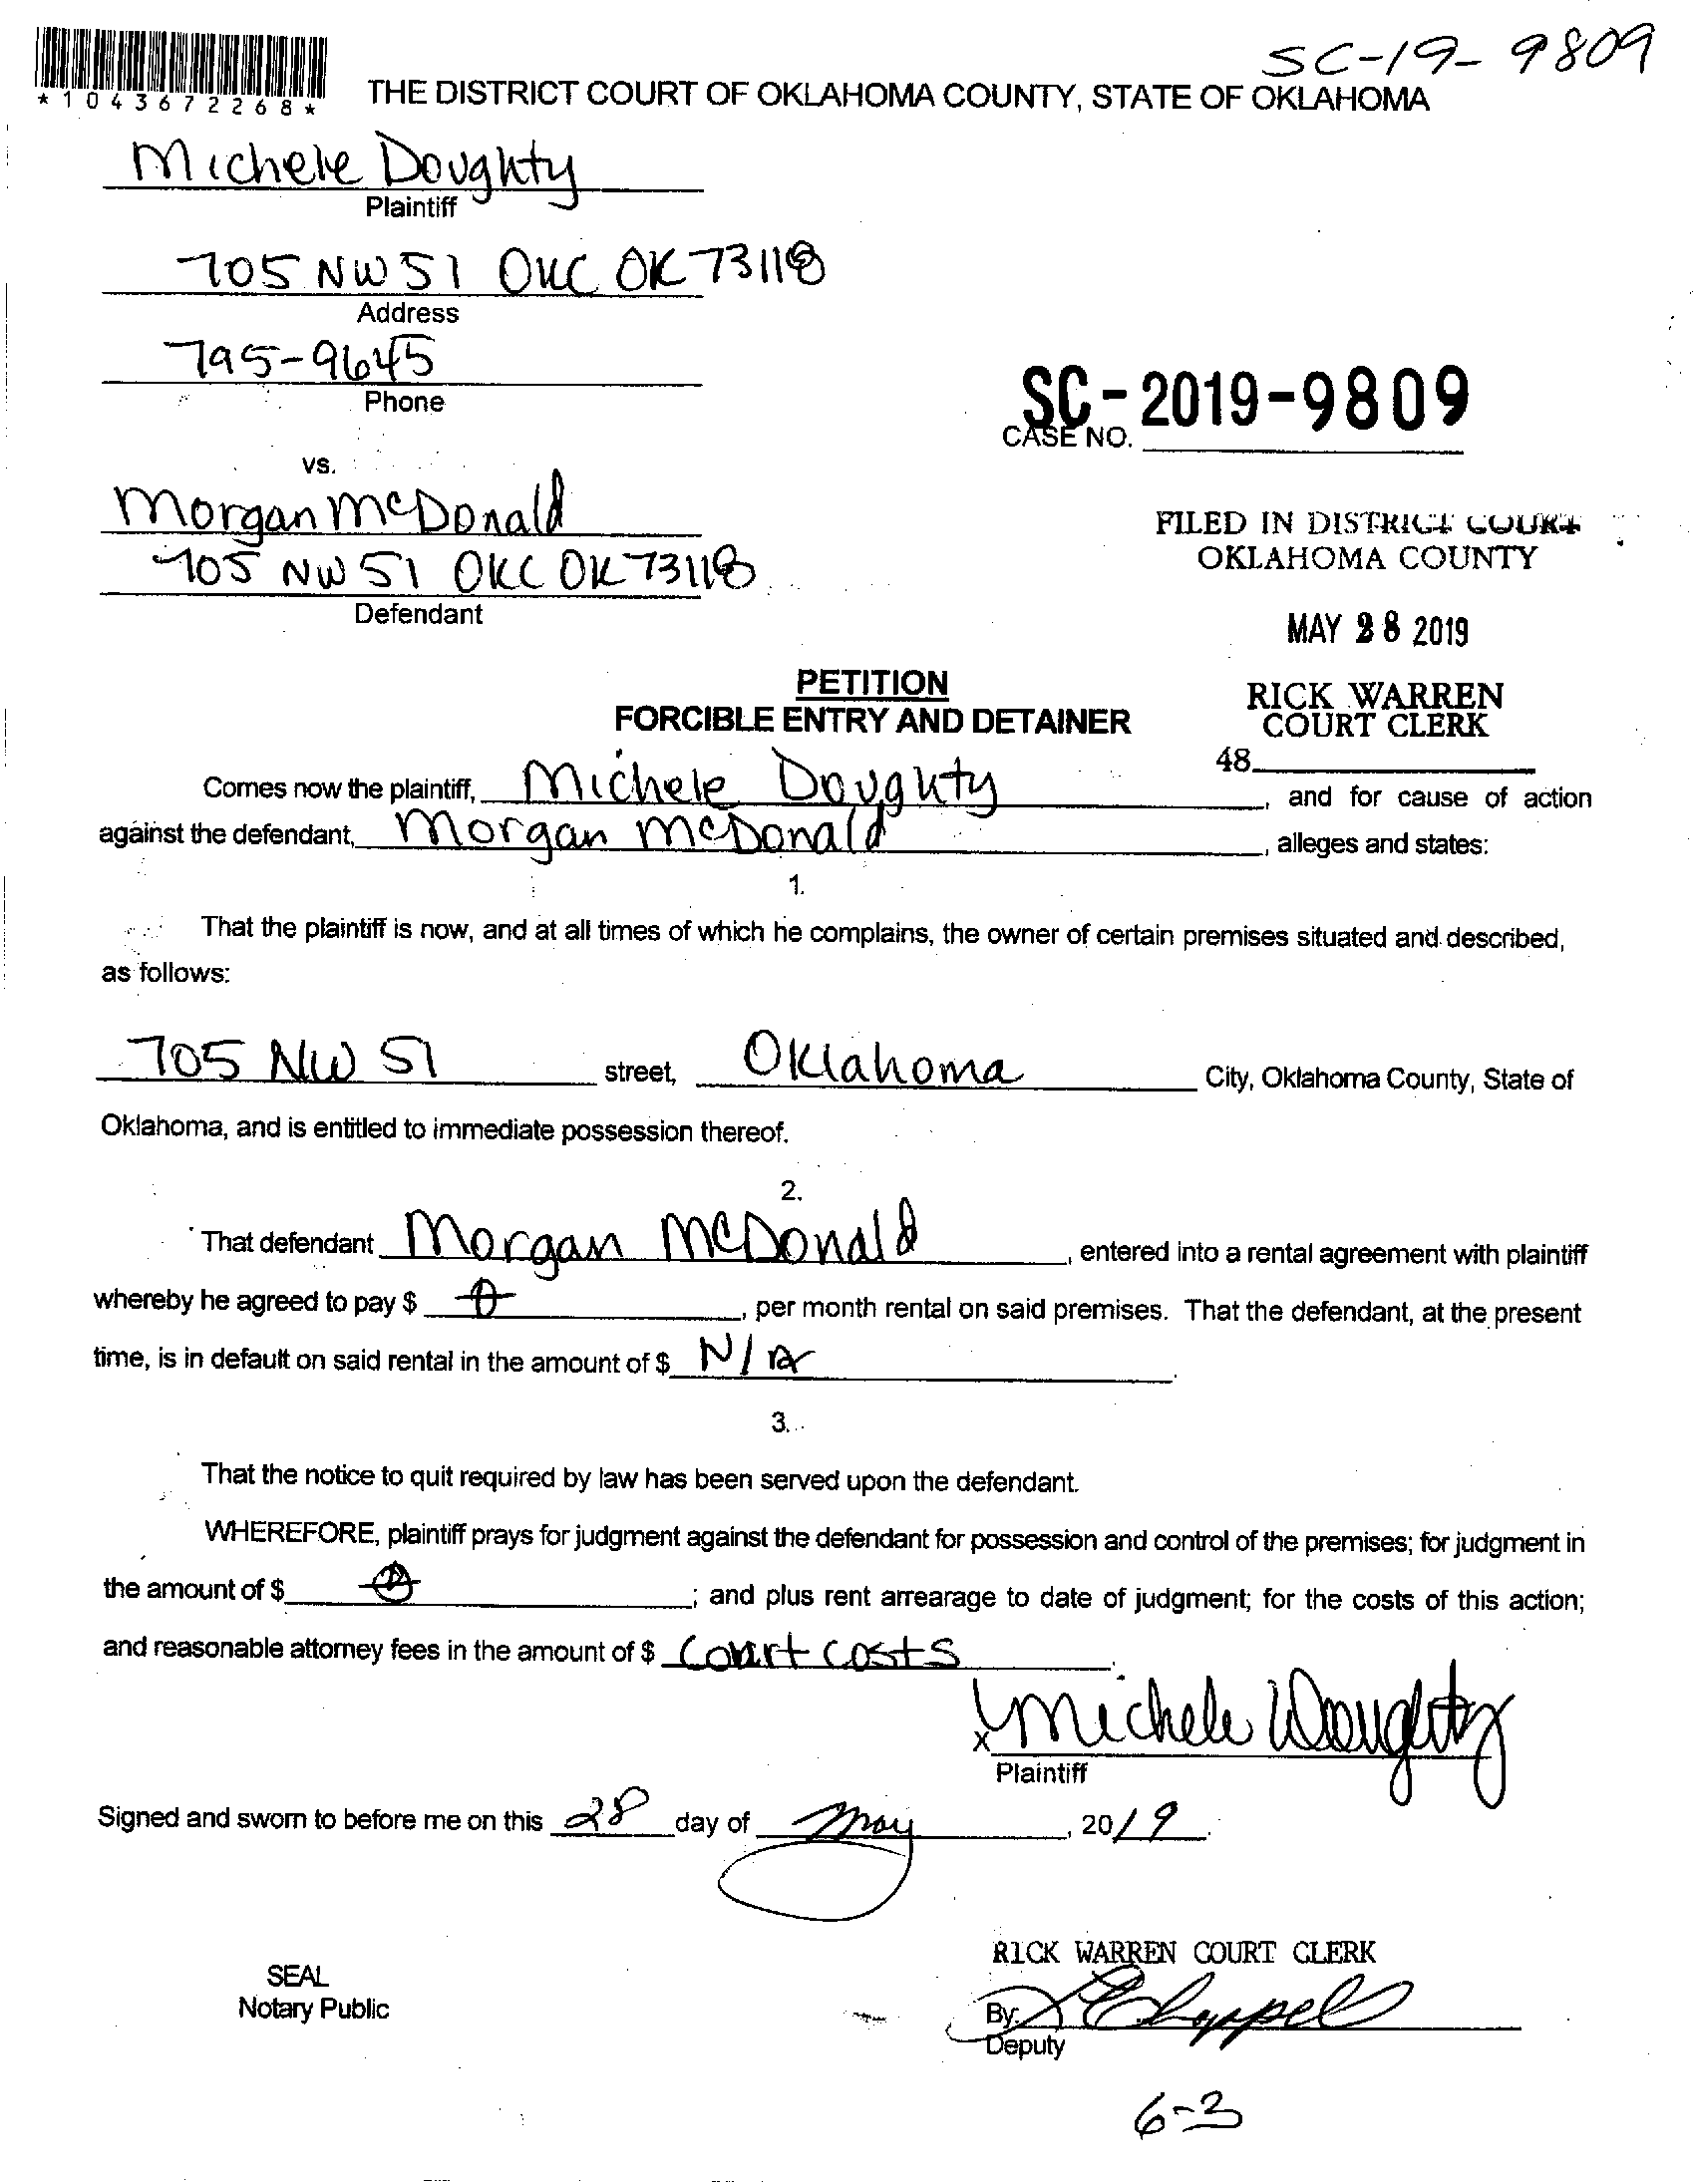 SC-19-9809
*1043672268*
THE DISTRICT COURT OF OKLAHOMA COUNTY, STATE OF OKLAHOMA
Michele Doughty
Plaintiff
705 NW 51 OKC OK 73118
Address
795-9645
Phone
SC-2019-9809
CASE NO.
vs.
Morgan McDonald
705 NW 51 OKC OK 73118
Defendant
FILED IN DISTRICT COURT
OKLAHOMA COUNTY
MAY 28 2019
RICK WARREN
COURT CLERK
48
PETITION
FORCIBLE ENTRY AND DETAINER
Comes now the plaintiff, Michele Doughty, and for cause of action
against the defendant, Morgan McDonald, alleges and states:
1.
That the plaintiff is now, and at all times of which he complains, the owner of certain premises situated and described,
as follows:
705 NW 51 street, Oklahoma City, Oklahoma County, State of
Oklahoma, and is entitled to immediate possession thereof.
2.
That defendant Morgan McDonald, entered into a rental agreement with plaintiff
whereby he agreed to pay $ 0, per month rental on said premises. That the defendant, at the present
time, is in default on said rental in the amount of $ N/A.
3.
That the notice to quit required by law has been served upon the defendant.
WHEREFORE, plaintiff prays for judgment against the defendant for possession and control of the premises; for judgment in
the amount of $ ; and plus rent arrearage to date of judgment; for the costs of this action;
and reasonable attorney fees in the amount of $ Court costs.
x Michele Doughty
Plaintiff
Signed and sworn to before me on this 28 day of May, 2019.
RICK WARREN COURT CLERK
SEAL
Notary Public
By: Chappell
Deputy
6-3